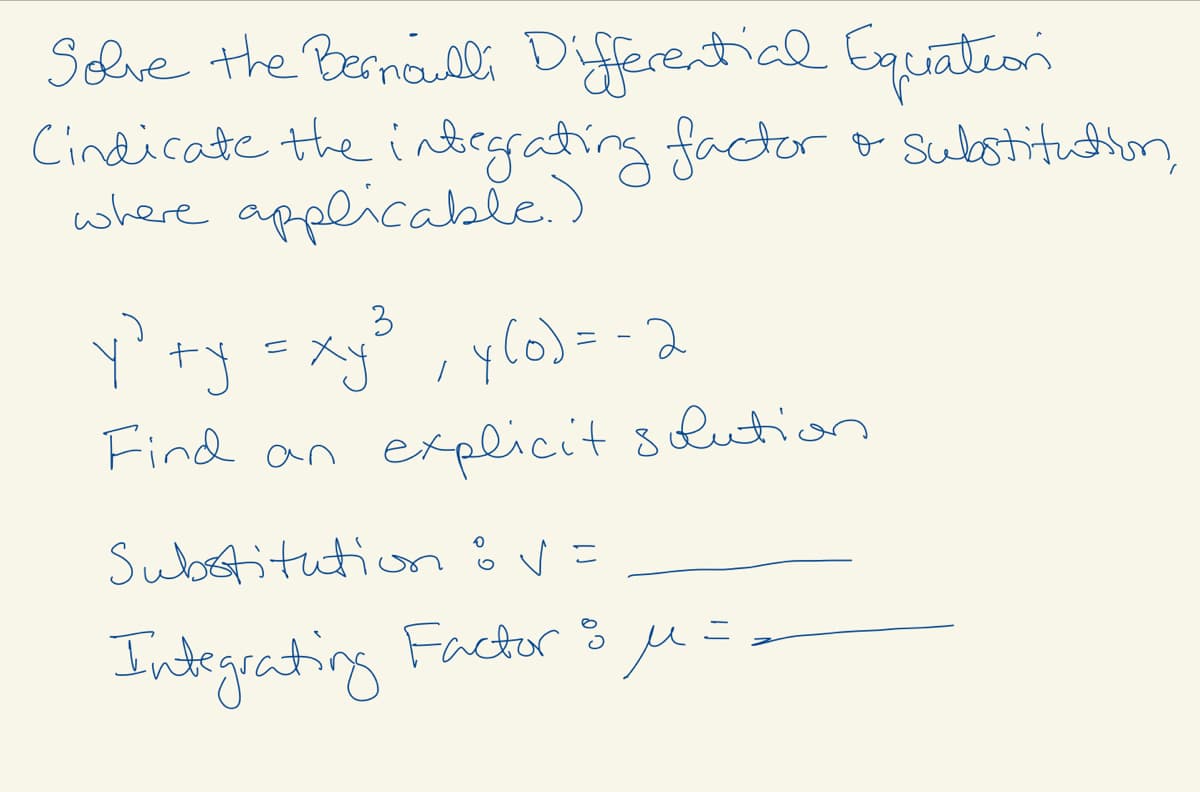 Solve the Bernoulli Differential Equation
(indicate the integrating factor or substitution,
where applicable.)
y' + y = xy³ , y(0) = -2
Find an explicit solution
Substitution : v = ______
Integrating Factor : μ = ______